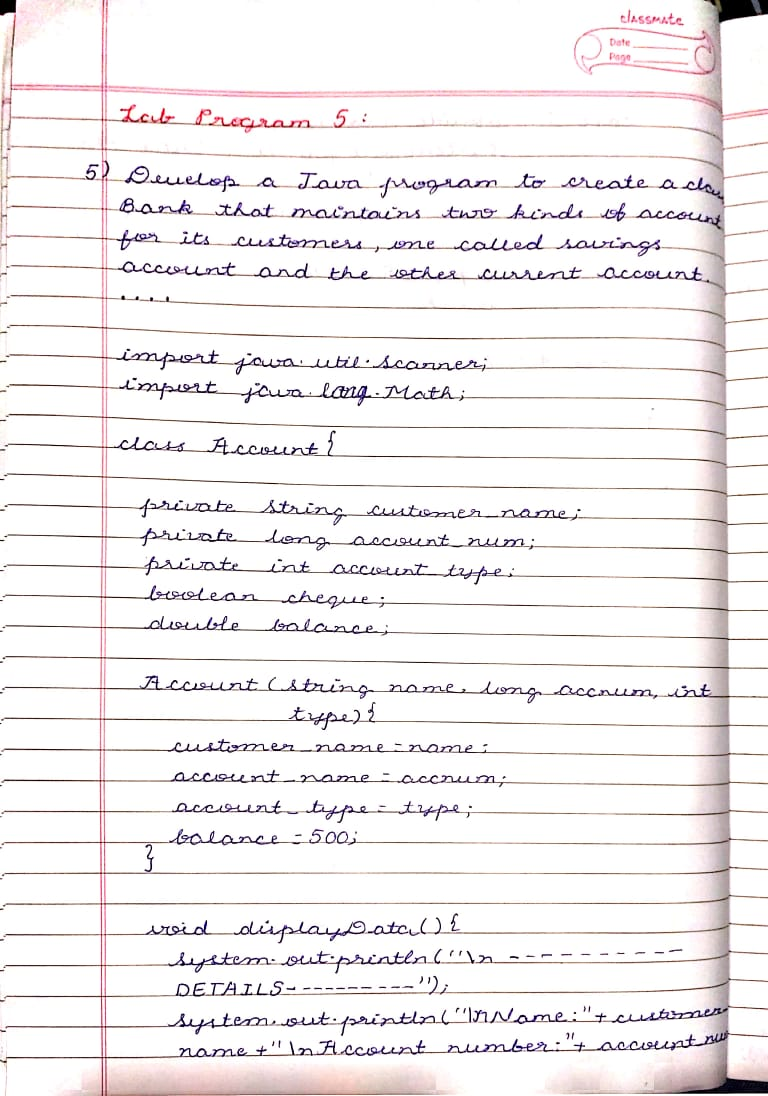 classmate
Date
Page
Lab Program 5 :
5) Develop a Java program to create a clas
Bank that maintains two kinds of account
for its customers, one called savings
account and the other current account.
....
import java.util.scanner;
import java.lang.Math;
class Account {
private string customer_name;
private long account_num;
private int account_type;
boolean cheque;
double balance;
Account (string name, long accnum, int
type) {
customer_name = name;
account_name = accnum;
account_type = type;
balance = 500;
}
void displayData() {
system.out.println("\n -----------
DETAILS----------");
system.out.println("\nName:"+ customer-
name +"\nAccount number:"+ account nu